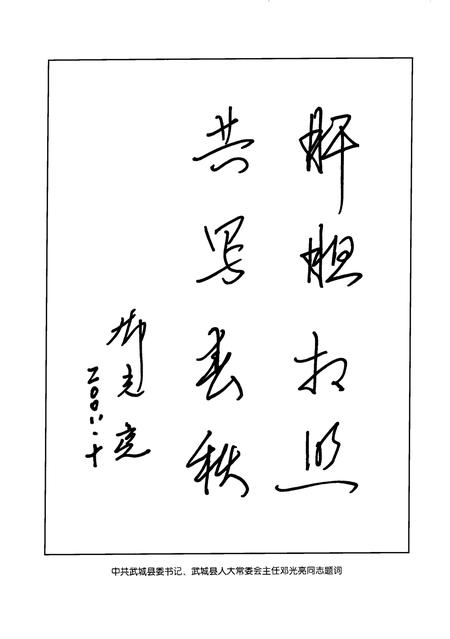 肝胆相照
共写春秋
邓光亮
二〇〇六.十
中共武城县委书记、武城县人大常委会主任邓光亮同志题词